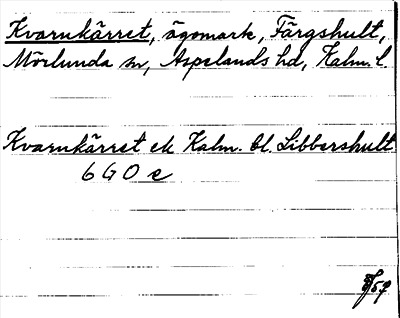 Kvarnkärret, ägomark, Färgshult,
Mörlunda sn, Aspelands hd, Kalm. l.
Kvarnkärret ek Kalm. bl. Libbershult
6 G O e